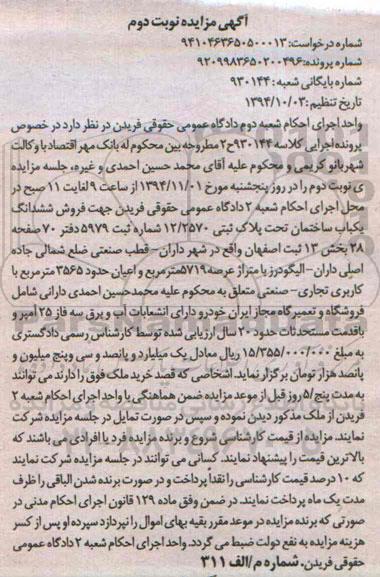 آگهی مزایده نوبت دوم
شماره درخواست: ۹۴۱۰۴۶۳۶۵۰۵۰۰۰۱۳
شماره پرونده:۹۲۰۹۹۸۳۶۵۰۲۰۰۴۹۶
شماره بایگانی شعبه : ۹۳۰۱۴۴
تاریخ تنظیم :۱۳۹۴/۱۰/۰۳
واحد اجرای احکام شعبه دوم دادگاه عمومی حقوقی فریدن در نظر دارد در خصوص
پرونده اجرایی کلاسه ۹۳۰۱۴۴ج۲ مطروحه بین محکوم له بانک مهر اقتصاد با وکالت
شهربانو کریمی و محکوم علیه آقای محمد حسین احمدی و غیره، جلسه مزایده
ی نوبت دوم را در روز پنجشنبه مورخ ۱۳۹۴/۱۱/۰۱ از ساعت ۹ لغایت ۱۱ صبح در
محل اجرای احکام شعبه ۲ دادگاه عمومی حقوقی فریدن جهت فروش ششدانگ
یکباب ساختمان تحت پلاک ثبتی ۱۲/۲۵۷۰ شماره ثبت ۵۹۷۹ دفتر ۷۰ صفحه
۲۸ بخش ۱۳ ثبت اصفهان واقع در شهر داران- قطب صنعتی ضلع شمالی جاده
اصلی داران-الیگودرز با متراژ عرصه ۵۷۱۹مترمربع و اعیان حدود ۳۵۶۵ مترمربع با
کاربری تجاری- صنعتی متعلق به محکوم علیه محمدحسین احمدی دارانی شامل
فروشگاه و تعمیرگاه مجاز ایران خودرو دارای انشعابات آب و برق سه فاز ۲۵ آمپر و
باقدمت مستحدثات حدود ۲۰ سال ارزیابی شده توسط کارشناس رسمی دادگستری
به مبلغ ۱۵/۳۵۵/۰۰۰/۰۰۰ ریال معادل یک میلیارد و پانصد و سی وپنج میلیون و
پانصد هزار تومان برگزار نماید. اشخاصی که قصد خرید ملک فوق را دارند می توانند
به مدت پنج/۵ روز قبل از موعد مزایده ضمن هماهنگی با واحد اجرای احکام شعبه ۲
فریدن از ملک مذکور دیدن نموده و سپس در صورت تمایل در جلسه مزایده شرکت
نمایند. مزایده از قیمت کارشناسی شروع و برنده مزایده فرد یا افرادی می باشند که
بالاترین قیمت را پیشنهاد نمایند. کسانی می توانند در جلسه مزایده شرکت نمایند
که ۱۰ درصد قیمت کارشناسی را نقداً پرداخت و در صورت برنده شدن الباقی را ظرف
مدت یک ماه پرداخت نمایند. در ضمن وفق ماده ۱۲۹ قانون اجرای احکام مدنی در
صورتی که برنده مزایده در موعد مقرر بقیه بهای اموال را نپردازد سپرده او پس از کسر
هزینه مزایده به نفع دولت ضبط می گردد. واحد اجرای احکام شعبه ۲ دادگاه عمومی
حقوقی فریدن. شماره م/الف ۳۱۱